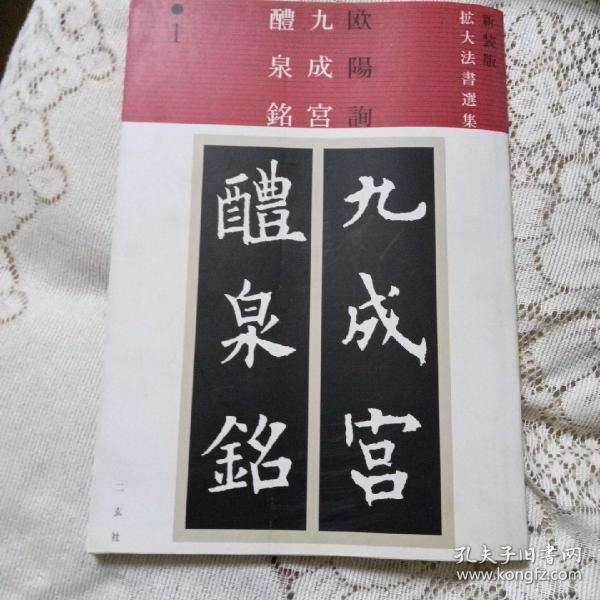 新装版
拡大法書選集
欧陽詢
九成宮
醴泉銘
●1
九成宮
醴泉銘
二玄社
孔夫子旧书网
www.kongfz.com